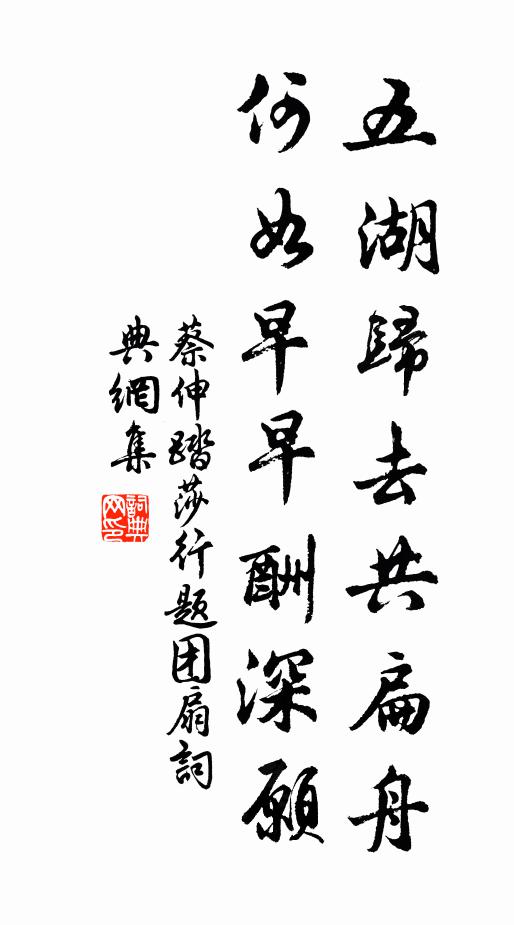 五湖歸去共扁舟
何如早早酬深願
蔡伸踏莎行题团扇詞
典網集
詞典网印